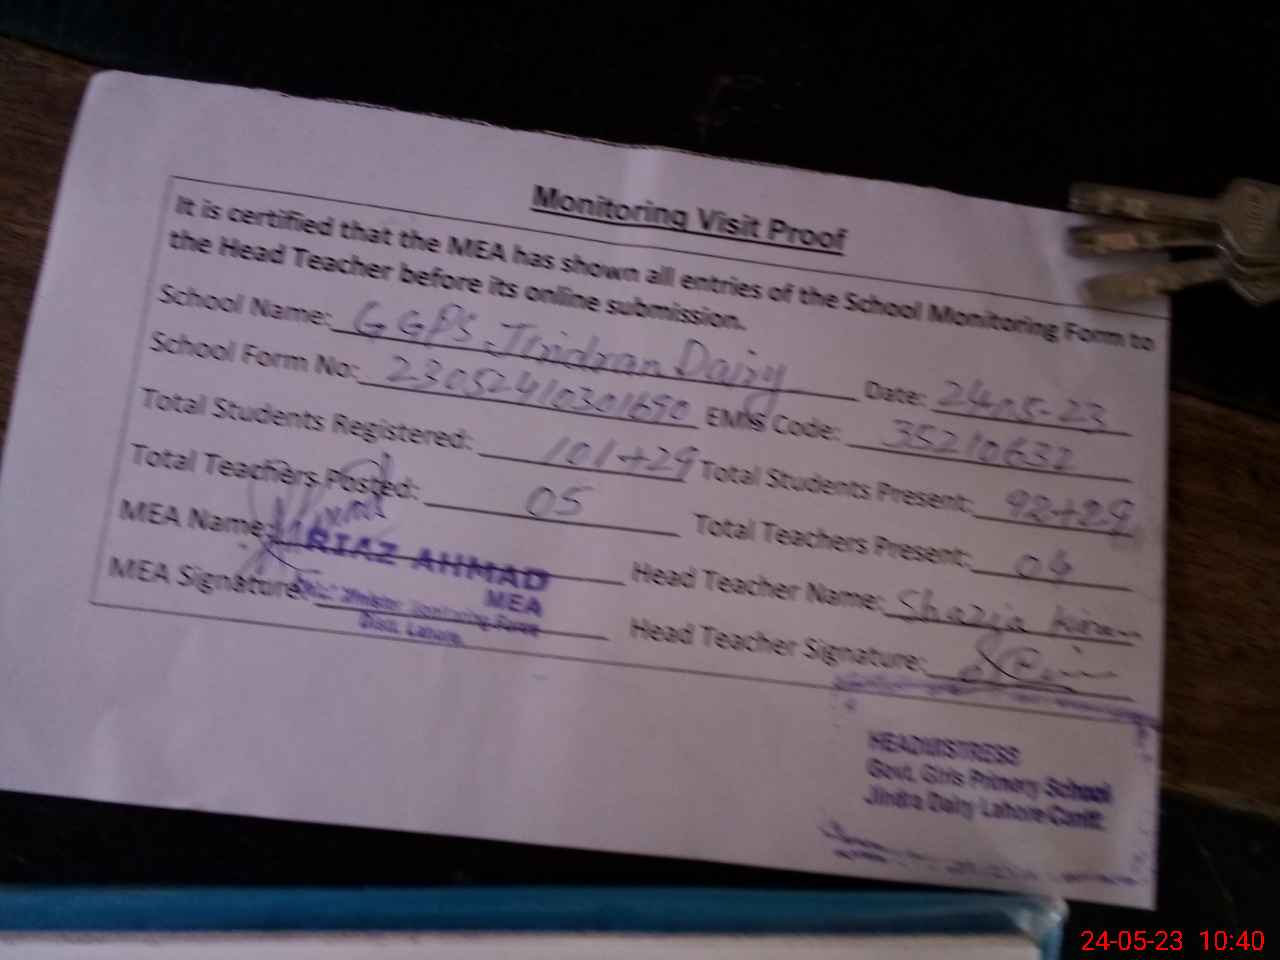 Monitoring Visit Proof
It is certified that the MEA has shown all entries of the School Monitoring Form to
the Head Teacher before its online submission.
School Name: GGPS Jindran Dairy Date: 24-05-23
School Form No: 23052410301690 EMIS Code: 35210632
Total Students Registered: 101+29 Total Students Present: 92+29
Total Teachers Posted: 05 Total Teachers Present: 04
MEA Name: RIAZ AHMAD Head Teacher Name: Shazia Kiran
MEA
MEA Signature: Head Teacher Signature:
Minister Monitoring Force
Distt. Lahore.
HEADMISTRESS
Govt. Girls Primary School
Jindra Dairy Lahore Cantt.
24-05-23 10:40